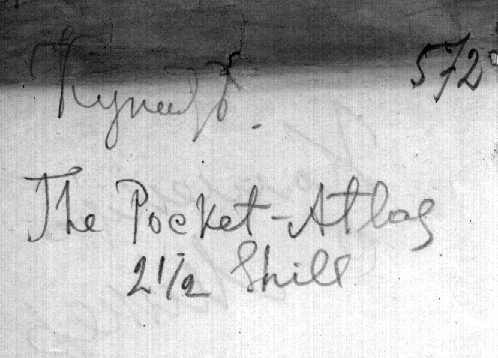 572
The Pocket-Atlas
2 1/2 Shill